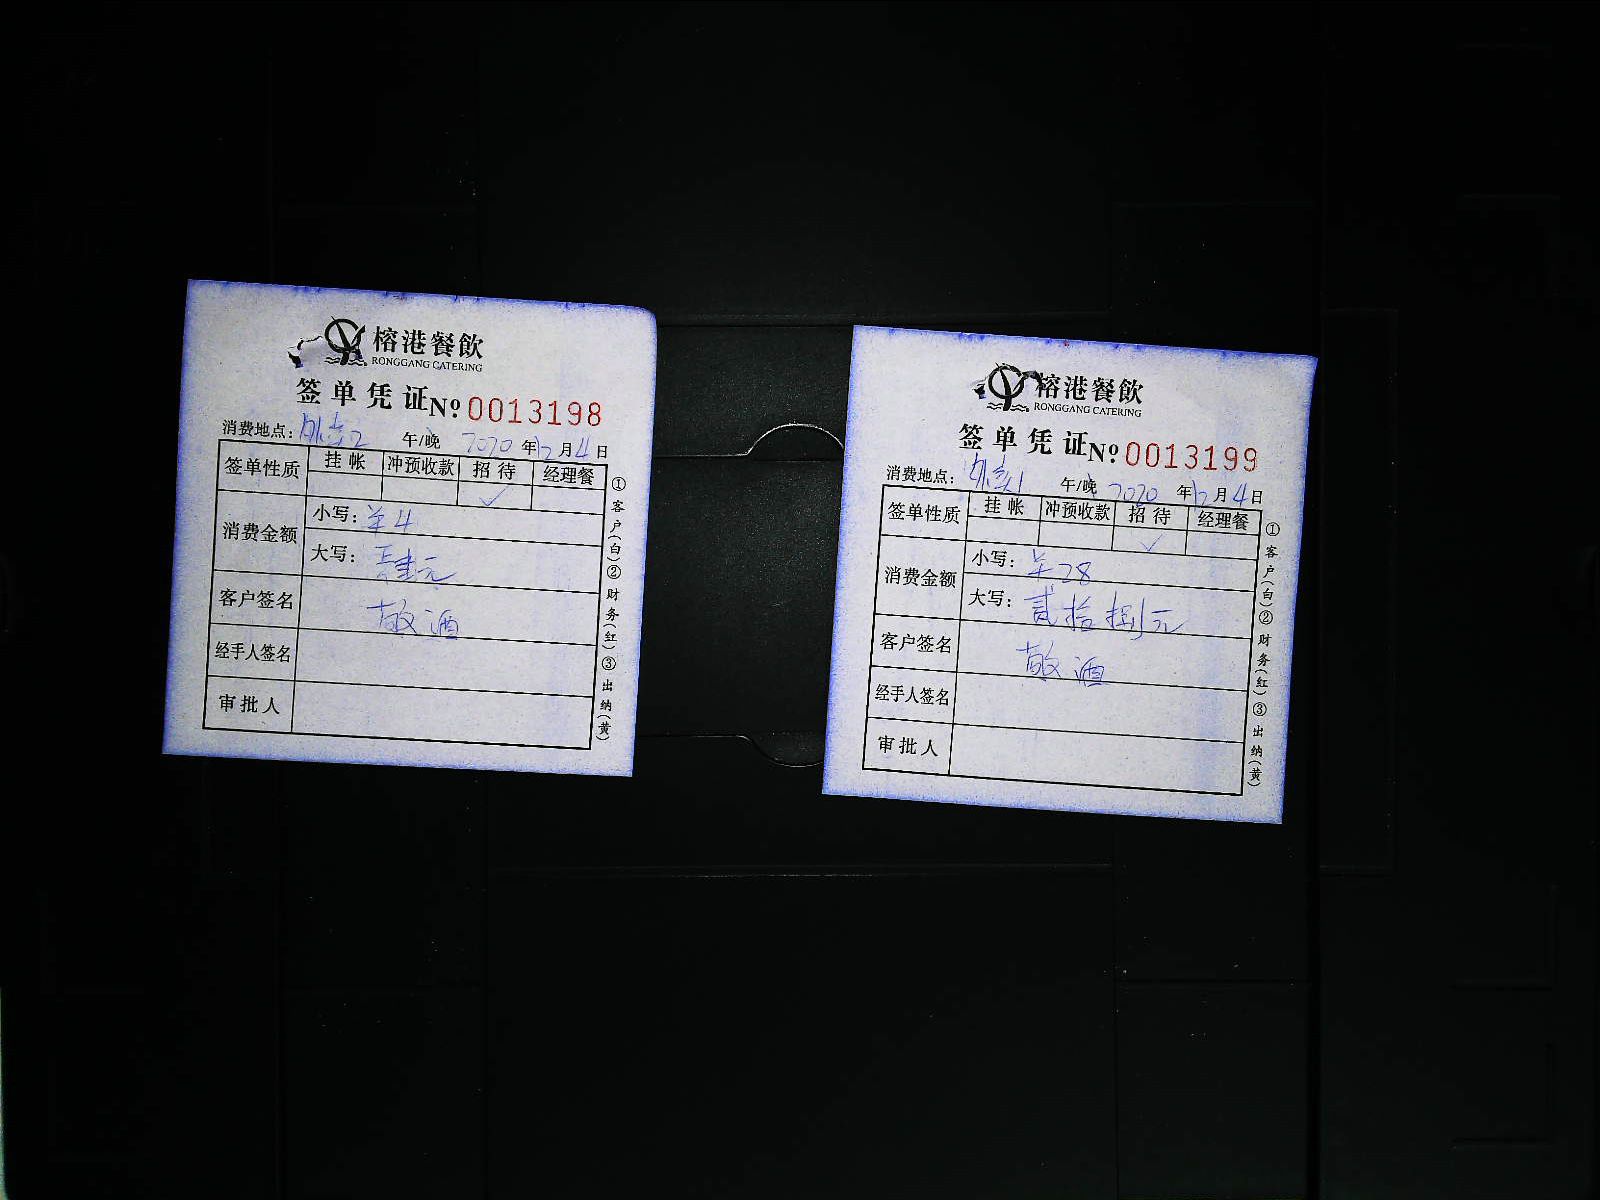 榕港餐飲
RONGGANG CATERING
签单凭证 № 0013198
消费地点: 午/晚 2020 年 12 月 4 日
签单性质 挂帐 冲预收款 招待 经理餐
✓
消费金额
小写: ¥4
大写: 肆元
客户签名 敬酒
经手人签名
审批人
①客户(白)②财务(红)③出纳(黄)
榕港餐飲
RONGGANG CATERING
签单凭证 № 0013199
消费地点: 午/晚 2020 年 12 月 4 日
签单性质 挂帐 冲预收款 招待 经理餐
✓
消费金额
小写: ¥28
大写: 贰拾捌元
客户签名 敬酒
经手人签名
审批人
①客户(白)②财务(红)③出纳(黄)